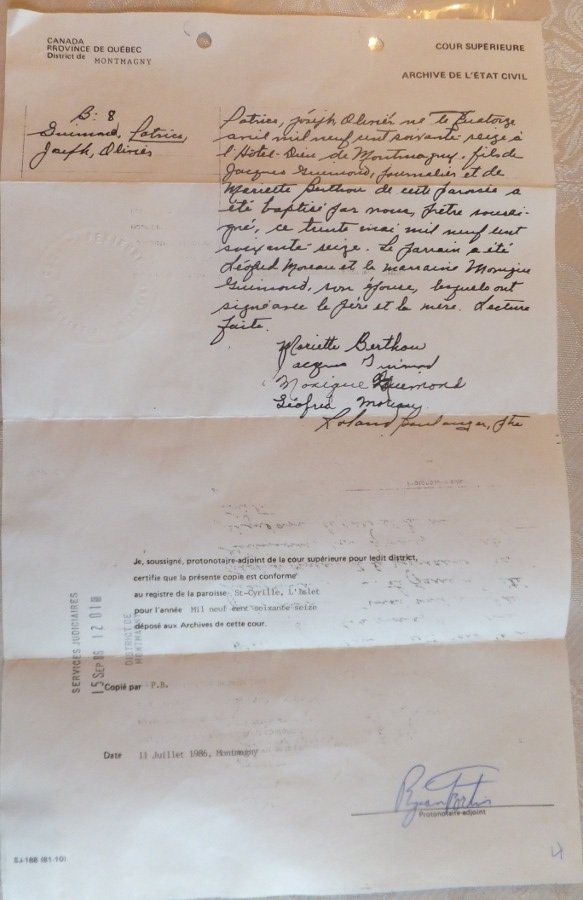 CANADA
PROVINCE DE QUÉBEC
District de MONTMAGNY
COUR SUPÉRIEURE
ARCHIVE DE L'ÉTAT CIVIL
B: 8
Guimond, Patrice,
Joseph, Olivier
Patrice, Joseph Olivier né le Quatorze
avril mil neuf cent soixante-seize à
l'Hôtel-Dieu de Montmagny, fils de
Jacques Guimond, journalier et de
Mariette Berthou de cette paroisse a
été baptisé par nous, prêtre soussi-
gné, ce trente mai mil neuf cent
soixante-seize. Le parrain a été
Léofred Moreau et la marraine Monique
Guimond, son épouse, lesquels ont
signé avec le père et la mère. Lecture
faite.
Mariette Berthou
Jacques Guimond
Monique Guimond
Léofred Moreau
Roland Boulanger, ptre
Je, soussigné, protonotaire-adjoint de la cour supérieure pour ledit district,
certifie que la présente copie est conforme
au registre de la paroisse St-Cyrille, L'Islet
pour l'année Mil neuf cent soixante seize
déposé aux Archives de cette cour.
SERVICES JUDICIAIRES
15 SEP 86 12 01
DISTRICT DE
MONTMAGNY
Copié par P.B.
Date 11 Juillet 1986, Montmagny
Protonotaire-adjoint
SJ-188 (81-10)